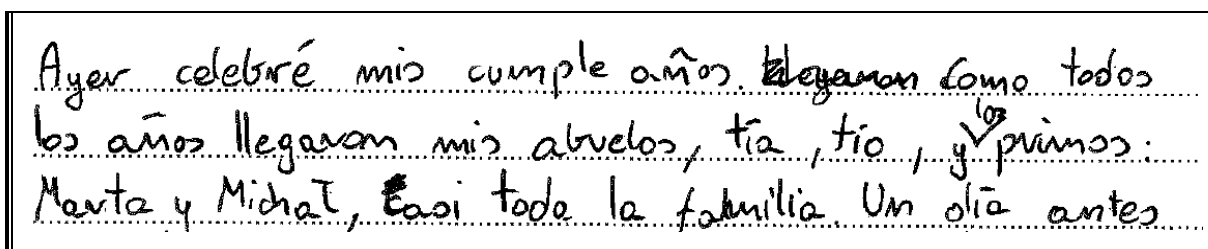 Ayer celebré mis cumple años. llegaron Como todos
los años llegaron mis abuelos, tía, tío, y los primos:
Marta y Michał, Casi toda la fahmilia. Un día antes